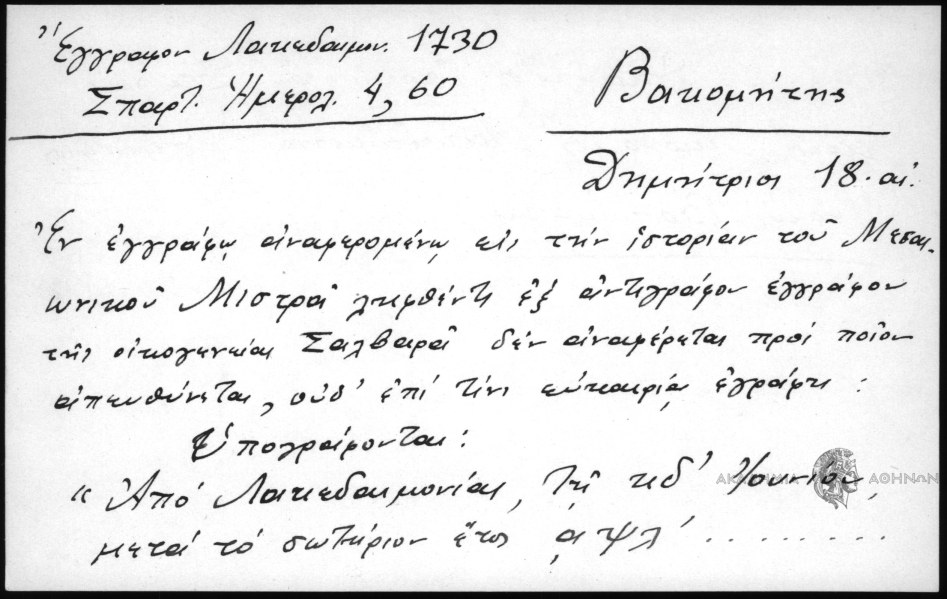 Ἔγγραφον Λακεδαιμον. 1730
Σπαρτ. Ἡμερολ. 4, 60
Βακομήτης
Δημήτριος 18. αἰ.
Ἐν ἐγγράφῳ ἀναφερομένῳ εἰς τὴν ἱστορίαν τοῦ Μεσαι-
ωνικοῦ Μιστρᾶ ληφθέντι ἐξ ἀντιγράφου ἐγγράφου
τῆς οἰκογενείας Σαλβαρᾶ δὲν ἀναφέρεται πρὸς ποῖον
ἀπευθύνεται, οὐδ' ἐπὶ τίνι εὐκαιρίᾳ ἐγράφη :
Ὑπογράφονται :
" Ἀπὸ Λακεδαιμονίας, τῇ κδ' Ἰουνίου,
μετὰ τὸ σωτήριον ἔτος ͵αψλ' . . . . . . . .
ΑΚΑΔΗΜΙΑ ΑΘΗΝΩΝ